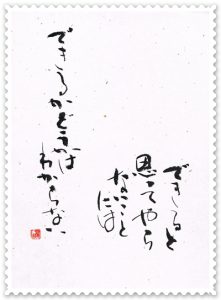 できると
思ってやら
ないこと
には
できるかどうかは
わからない